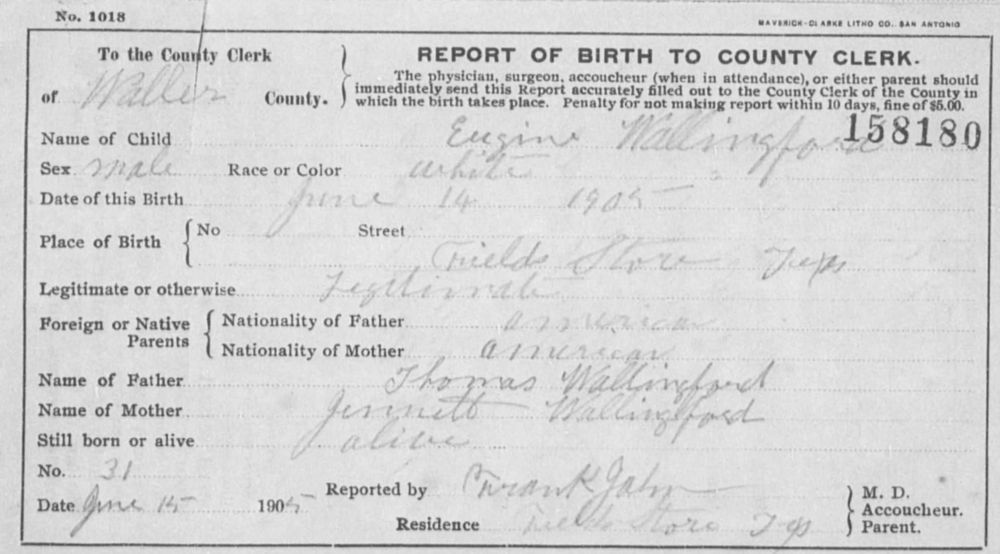 No. 1018
MAVERICK-CLARKE LITHO CO., SAN ANTONIO
To the County Clerk
of Waller County.
REPORT OF BIRTH TO COUNTY CLERK.
The physician, surgeon, accoucheur (when in attendance), or either parent should
immediately send this Report accurately filled out to the County Clerk of the County in
which the birth takes place. Penalty for not making report within 10 days, fine of $5.00.
158180
Name of Child Eugine Wallingford
Sex male Race or Color white
Date of this Birth June 14 1905
Place of Birth No Street
Fields Store Texs
Legitimate or otherwise Legitimate
Foreign or Native Parents
Nationality of Father american
Nationality of Mother american
Name of Father Thomas Wallingford
Name of Mother Jennett Wallingford
Still born or alive alive
No. 31
Date June 15 1905
Reported by Frank Jahn
Residence Fields Store
M. D.
Accoucheur.
Parent.